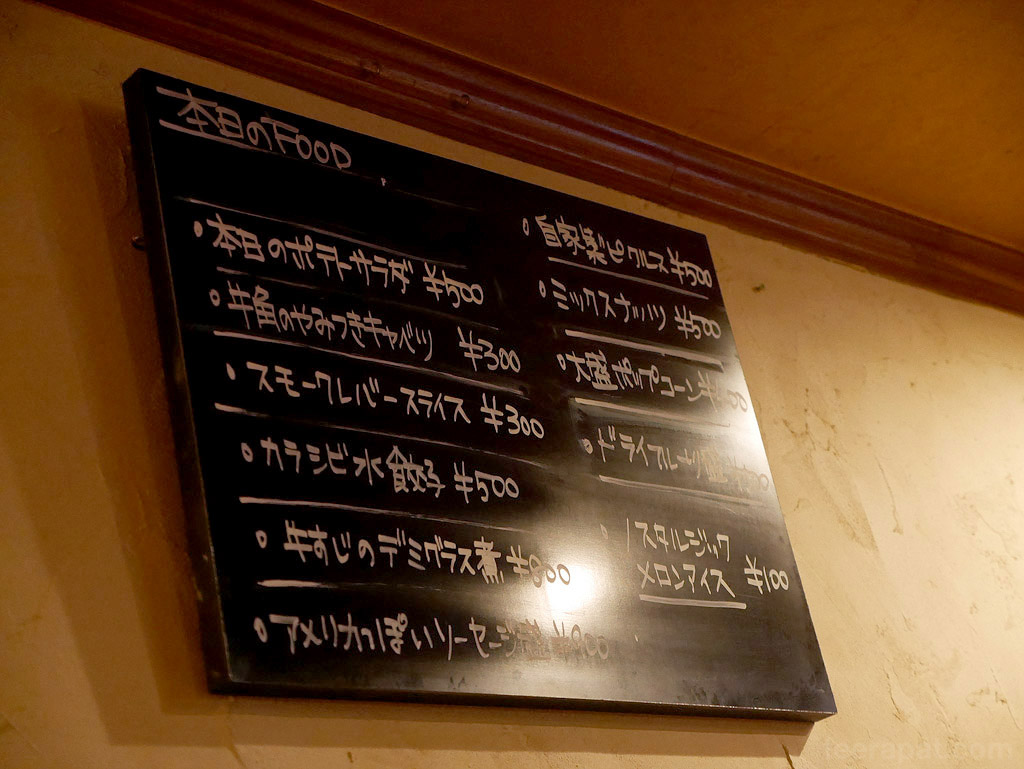 本日のFOOD
• 本日のポテトサラダ ¥500
• 牛角のやみつきキャベツ ¥300
• スモークレバースライス ¥300
• カラシビ水餃子 ¥500
• 牛すじのデミグラス煮 ¥800
• アメリカっぽいソーセージ盛 ¥900
• 自家製ピクルス ¥500
• ミックスナッツ ¥500
• 大盛ポップコーン
• ドライフルーツ盛
• ノスタルジック
メロンアイス ¥100
teerapat.com